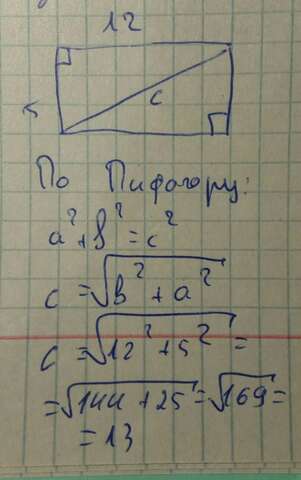 12
5
c
По Пифагору:
a² + b² = c²
c = √b² + a²
c = √12² + 5² =
= √144 + 25 = √169 =
= 13